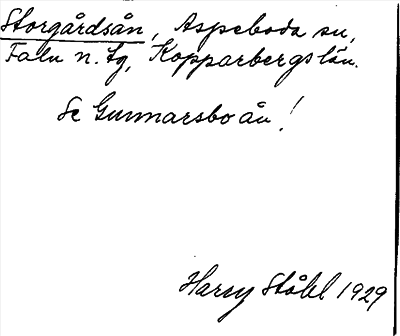 Storgårdsån, Aspeboda sn,
Falu n. tg, Kopparbergs län.
Se Gunnarsboån!
Harry Ståhl 1929